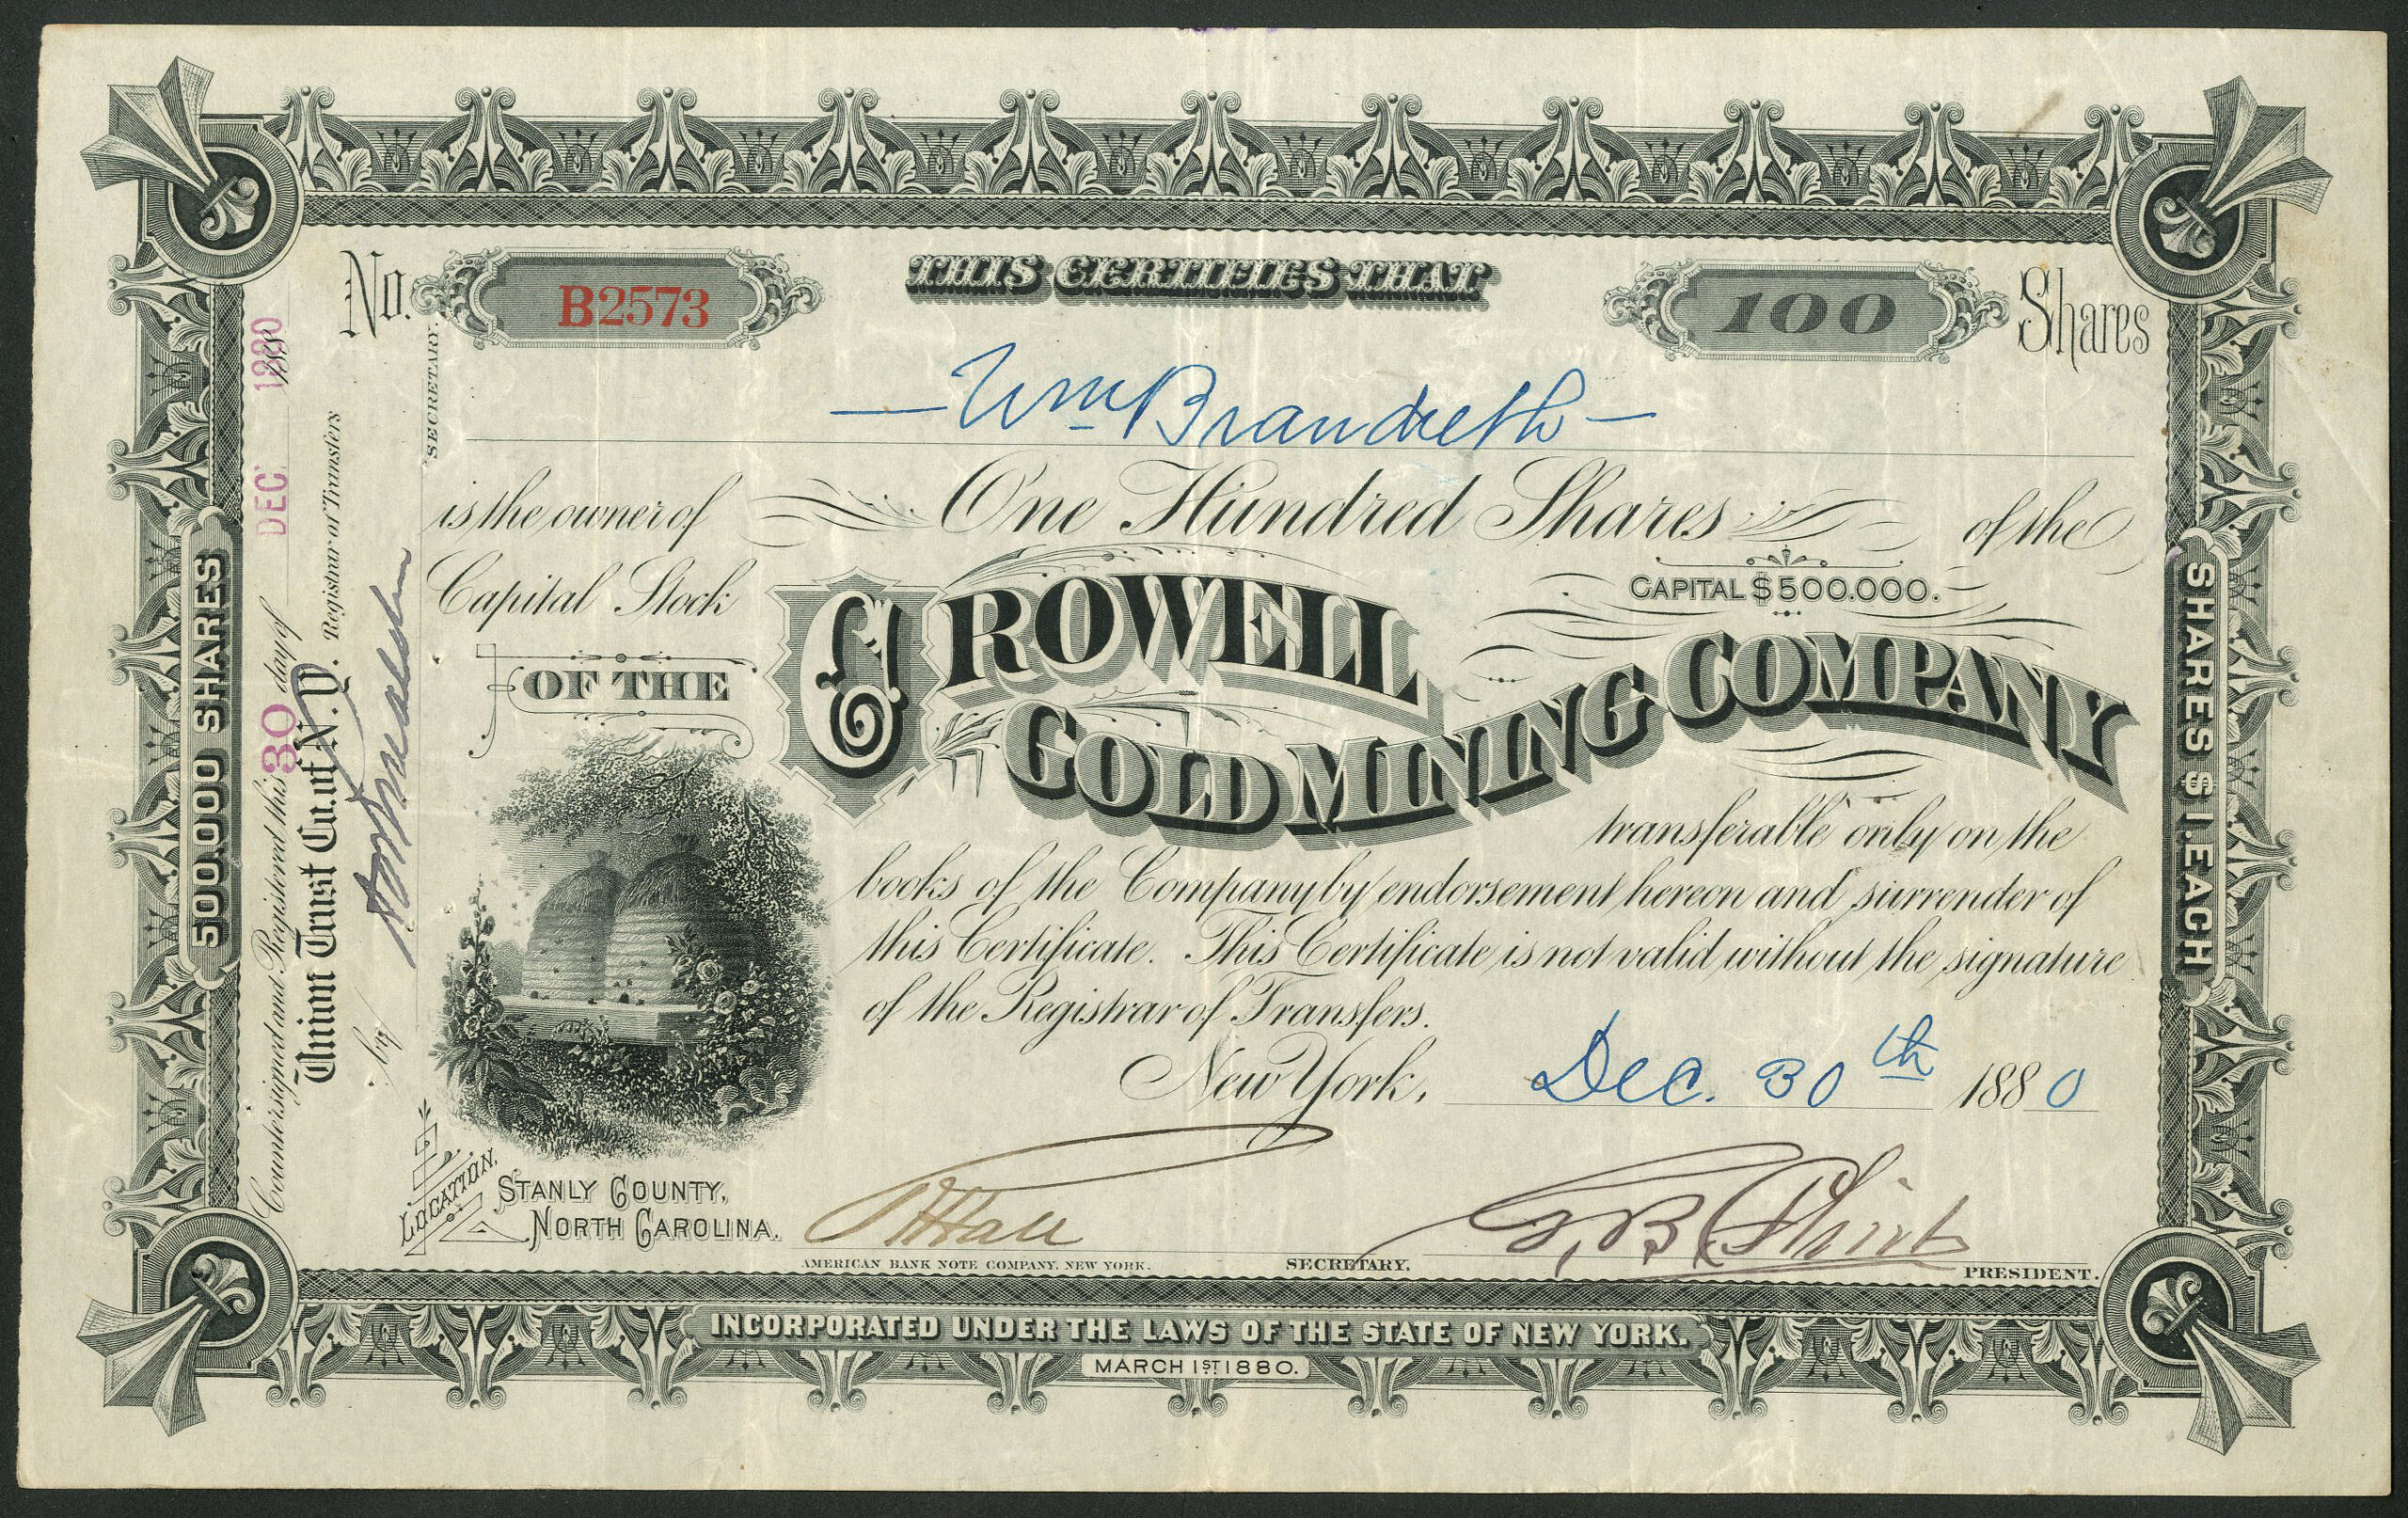 No. B2573
THIS CERTIFIES THAT
100 Shares
Wm Brandreth
is the owner of One Hundred Shares of the
Capital Stock
CAPITAL $500.000.
OF THE CROWELL
GOLD MINING COMPANY
transferable only on the
books of the Company by endorsement hereon and surrender of
this Certificate. This Certificate is not valid without the signature
of the Registrar of Transfers.
New York, Dec. 30th 1880
LOCATION.
STANLY COUNTY,
NORTH CAROLINA.
AMERICAN BANK NOTE COMPANY. NEW YORK.
SECRETARY.
PRESIDENT.
INCORPORATED UNDER THE LAWS OF THE STATE OF NEW YORK.
MARCH 1ST 1880.
500.000 SHARES
Countersigned and Registered this 30 day of DEC. 1880
Union Trust Co. of N.Y. Registrar of Transfers
by
SECRETARY.
SHARES $1. EACH